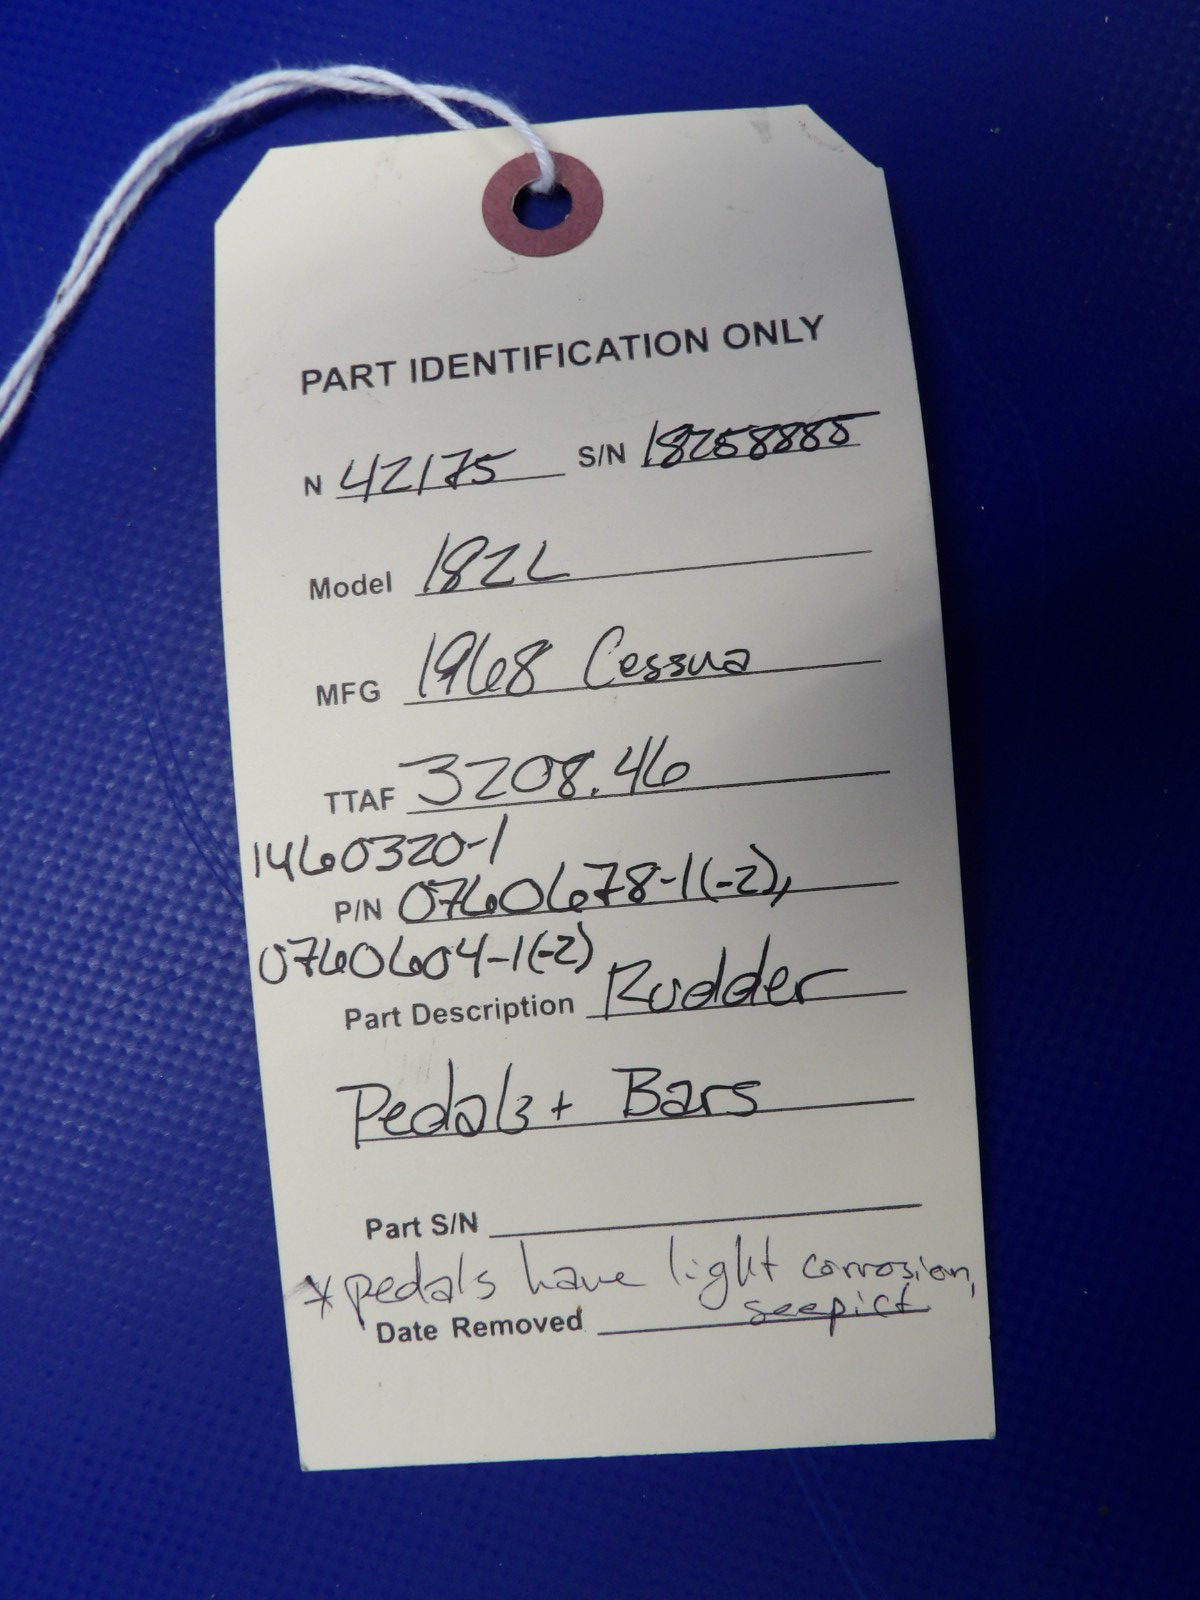 PART IDENTIFICATION ONLY
N 42175 S/N 18258885
Model 182L
MFG 1968 Cessna
TTAF 3208.46
1460320-1
P/N 0760678-1(-2),
0760604-1(-2)
Part Description Rudder
Pedals + Bars
Part S/N
*pedals have light corrosion,
see pict
Date Removed